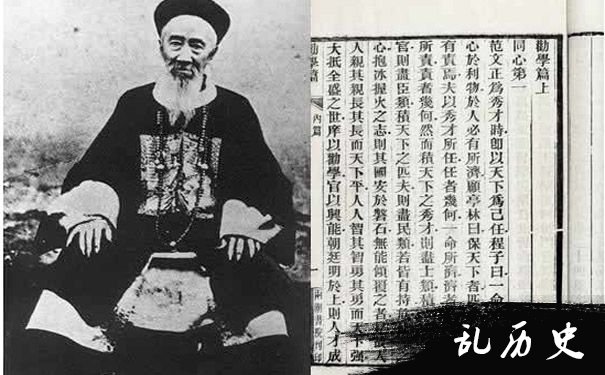 勸學篇上
同心第一
范文正爲秀才時卽以天下爲己任程子曰一命
心於利物於人必有所濟顧亭林曰保天下者匹
有責焉夫以秀才所任任者幾何一命所濟濟者
所責責者幾何然而積天下之秀才則盡士類積
官則盡臣類積天下之匹夫則盡民類若皆有持
心抱冰握火之志則其國安於磐石無能傾覆之者是故人
人親其親長其長而天下平人人智其智勇其勇而天下強
大抵全盛之世庠以勸學官以興能朝廷明於上則人才成
勸學篇 內篇 一
乱历史